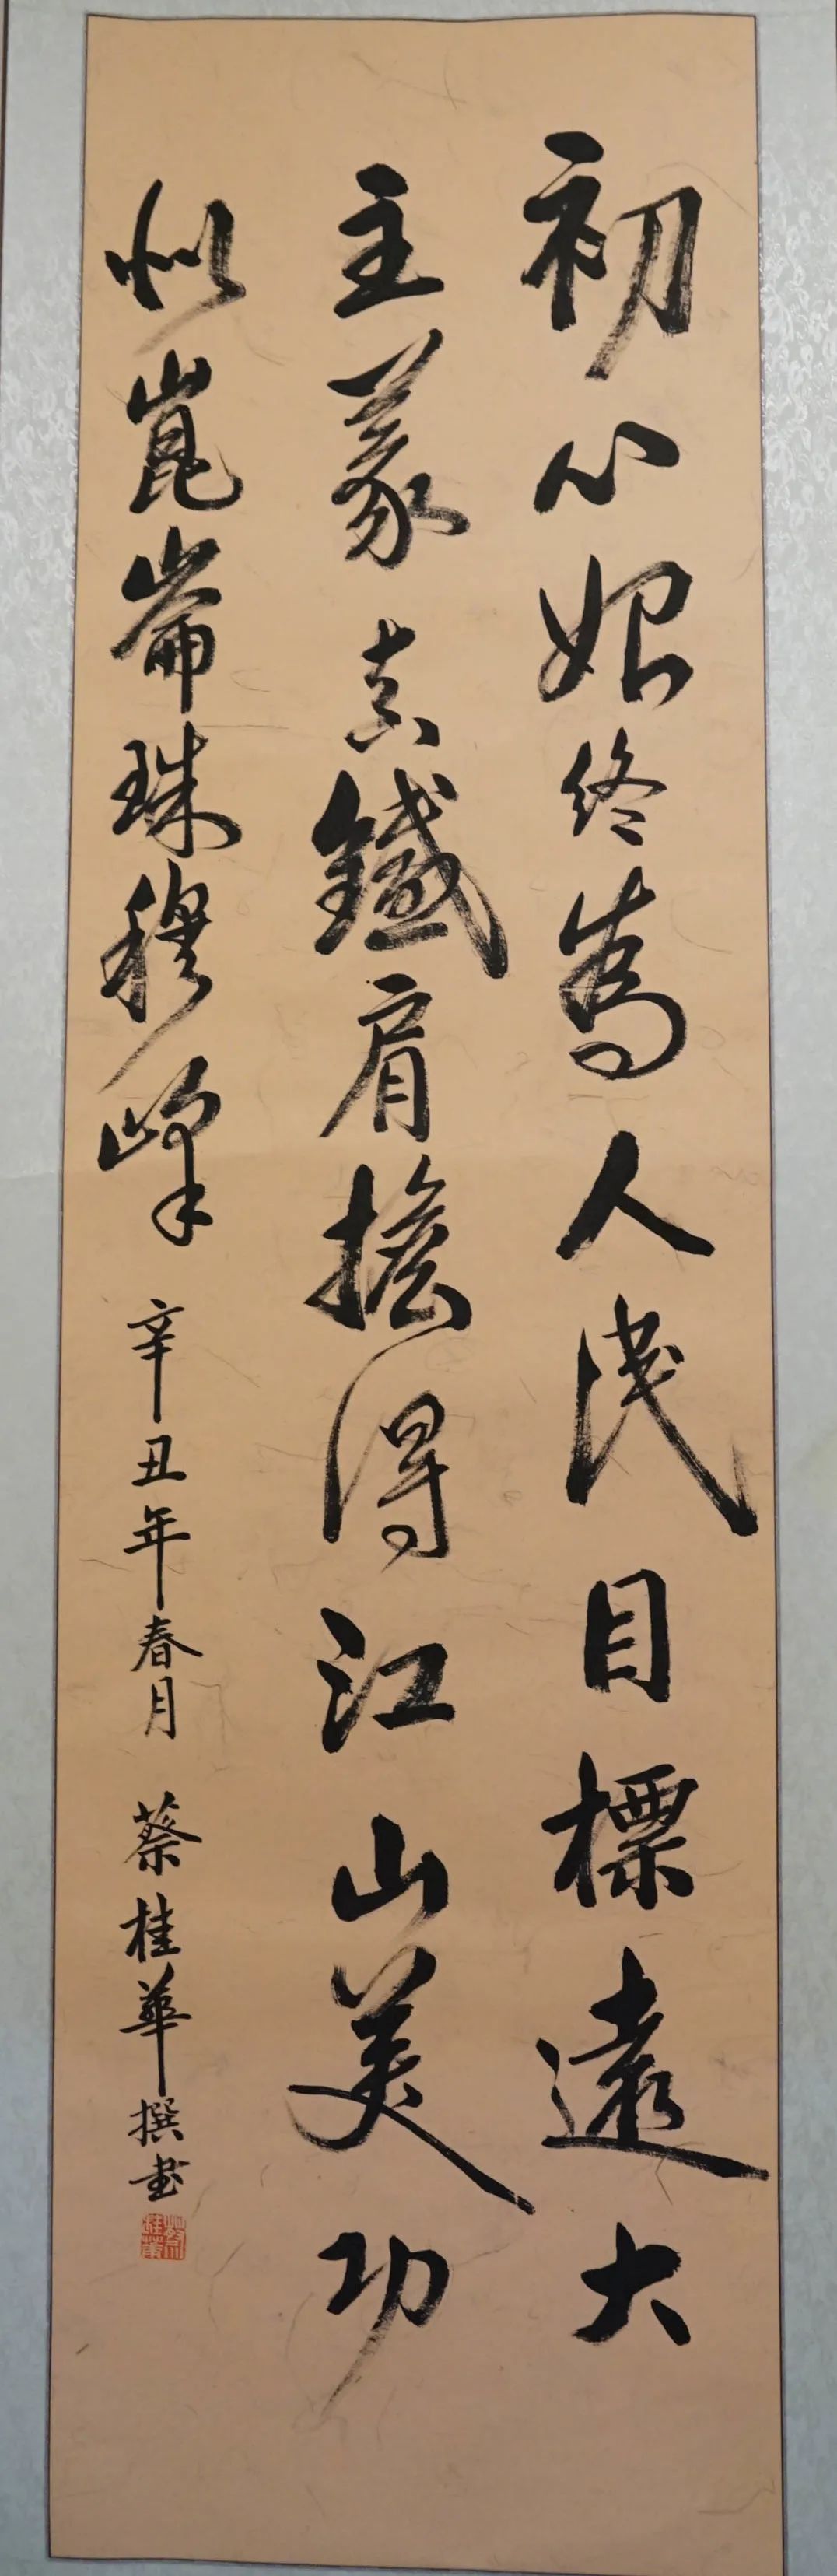 初心始终為人民目標遠大
主義真鐵肩擔得江山美功
似崑崙珠穆峰
辛丑年春月 蔡桂華撰書
蔡桂華